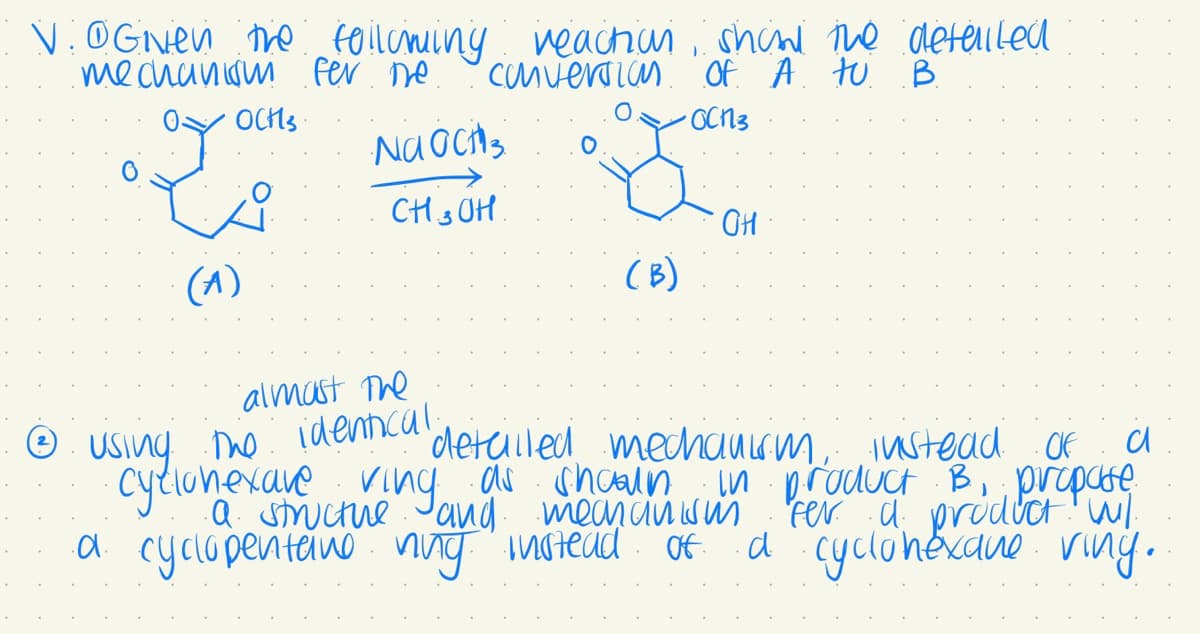 V. ① Given the following reaction, show the detailed
mechanism for the conversion of A to B
O OCH3 O OCH3
O NaOCH3 O
O CH3OH OH
(A) (B)
almost the
② using the identical detailed mechanism, instead of a
cyclohexane ring as shown in product B, propose
a structure and mechanism for a product w/
a cyclopentane ring instead of a cyclohexane ring.